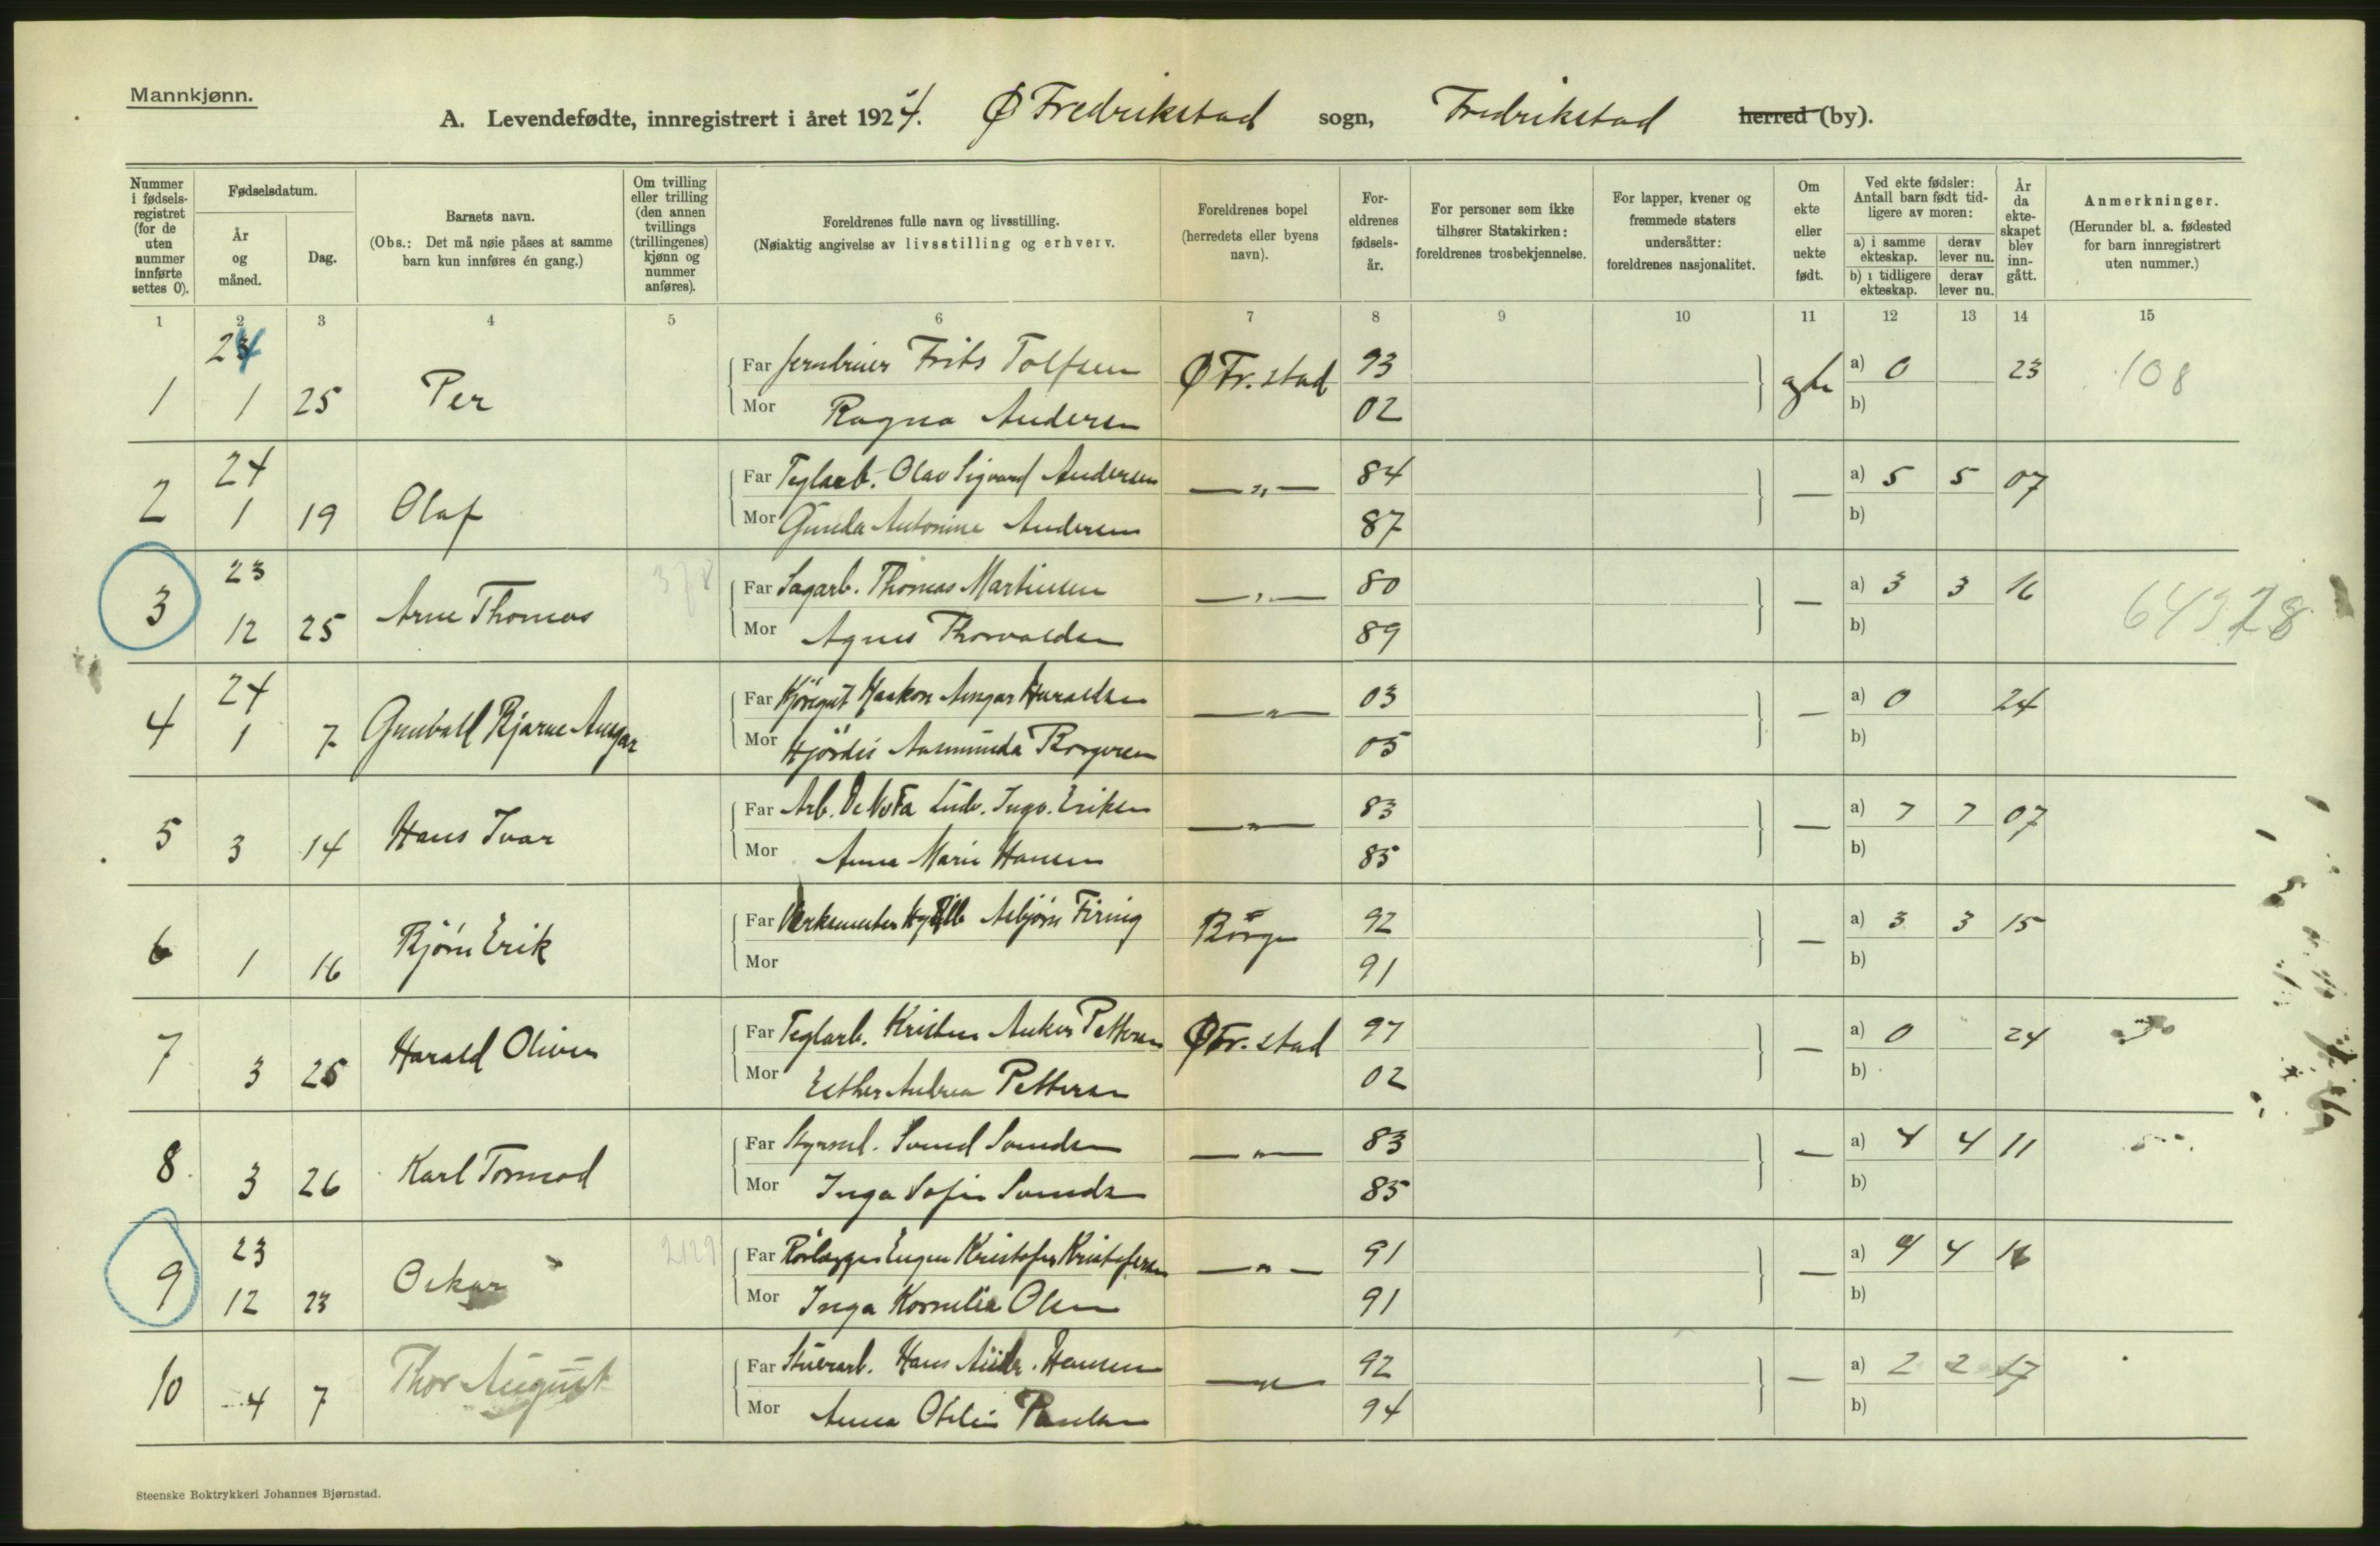 Mannkjønn.
A. Levendefødte, innregistrert i året 1924. Ø Fredrikstad sogn, Fredrikstad herred (by).
Nummer i fødselsregistret (for de uten nummer innførte settes 0).
Fødselsdatum.
År og måned.
Dag.
Barnets navn.
(Obs.: Det må nøie påses at samme barn kun innføres én gang.)
Om tvilling eller trilling (den annen tvillings (trillingenes) kjønn og nummer anføres).
Foreldrenes fulle navn og livsstilling.
(Nøiaktig angivelse av livsstilling og erhverv.
Foreldrenes bopel (herredets eller byens navn).
Foreldrenes fødselsår.
For personer som ikke tilhører Statskirken: foreldrenes trosbekjennelse.
For lapper, kvener og fremmede staters undersåtter: foreldrenes nasjonalitet.
Om ekte eller uekte født.
Ved ekte fødsler: Antall barn født tidligere av moren:
a) i samme ekteskap. derav lever nu.
b) i tidligere ekteskap. derav lever nu.
År da ekteskapet blev inngått.
Anmerkninger.
(Herunder bl. a. fødested for barn innregistrert uten nummer.)
1 2 3 4 5 6 7 8 9 10 11 12 13 14 15
24
1 1 25 Per Far Frits Tolfsen Ø Fr.stad 93 a) 0 23 108
Mor Ragna Andersen 02 b)
24
2 1 19 Olaf Far Teglarb. Olav Sigvard Andersen —„— 84 — a) 5 5 07
Mor Gunda Antonine Andersen 87 b)
23
3 12 25 Arne Thomas 378 Far Sagarb. Thomas Martinsen —„— 80 — a) 3 3 16
Mor Agnes Thorvaldsen 89 b)
24
4 1 7 Bjarne Ansgar Far Haakon Ansgar Haraldsen —„— 03 — a) 0 24
Mor Hjördis Aasmunda Borgersen 05 b)
5 3 14 Hans Ivar Far Arb. De No Fa Ludv. Ingv. Eriksen —„— 83 — a) 7 7 07
Mor Anna Marie Hansen 85 b)
6 1 16 Bjørn Erik Far Asbjørn Firing Borge 92 — a) 3 3 15
Mor 91 b)
7 3 25 Harald Oliver Far Teglarb. Kristen Anker Pettersen Ø Fr.stad 97 — a) 0 24
Mor Esther Andrea Pettersen 02 b)
8 3 26 Karl Tormod Far Styrm. Svend Svendsen —„— 83 — a) 4 4 11
Mor Inga Sofie Svendsen 85 b)
23
9 12 23 Oskar 2129 Far Rørlegger Eugen Kristofer Kristofersen —„— 91 — a) 4 4 16
Mor Inga Kornelia Olsen 91 b)
10 4 7 Thor August Far Stuerarb. Hans Andr. Hansen —„— 92 — a) 2 2 17
Mor Anna Otilie Paulsen 94 b)
Steenske Boktrykkeri Johannes Bjørnstad.